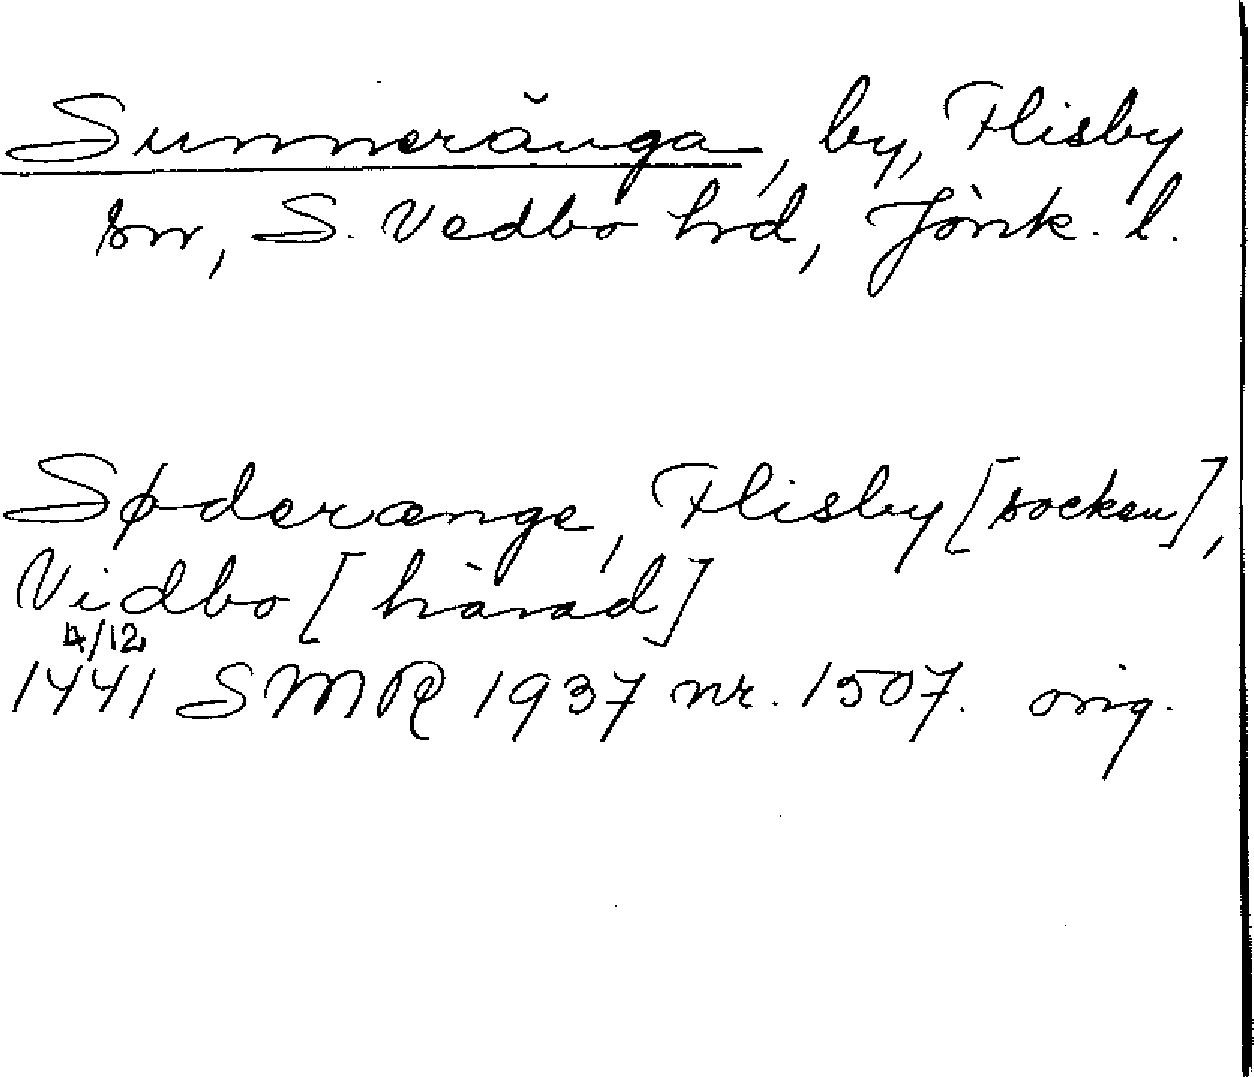 Sunneränga, by, Flisby
sn, S. Vedbo hd, Jönk. l.
Søderænge, Flisby [socken],
Vidbo [härad]
4/12
1441 SMR 1937 nr. 1507. orig.